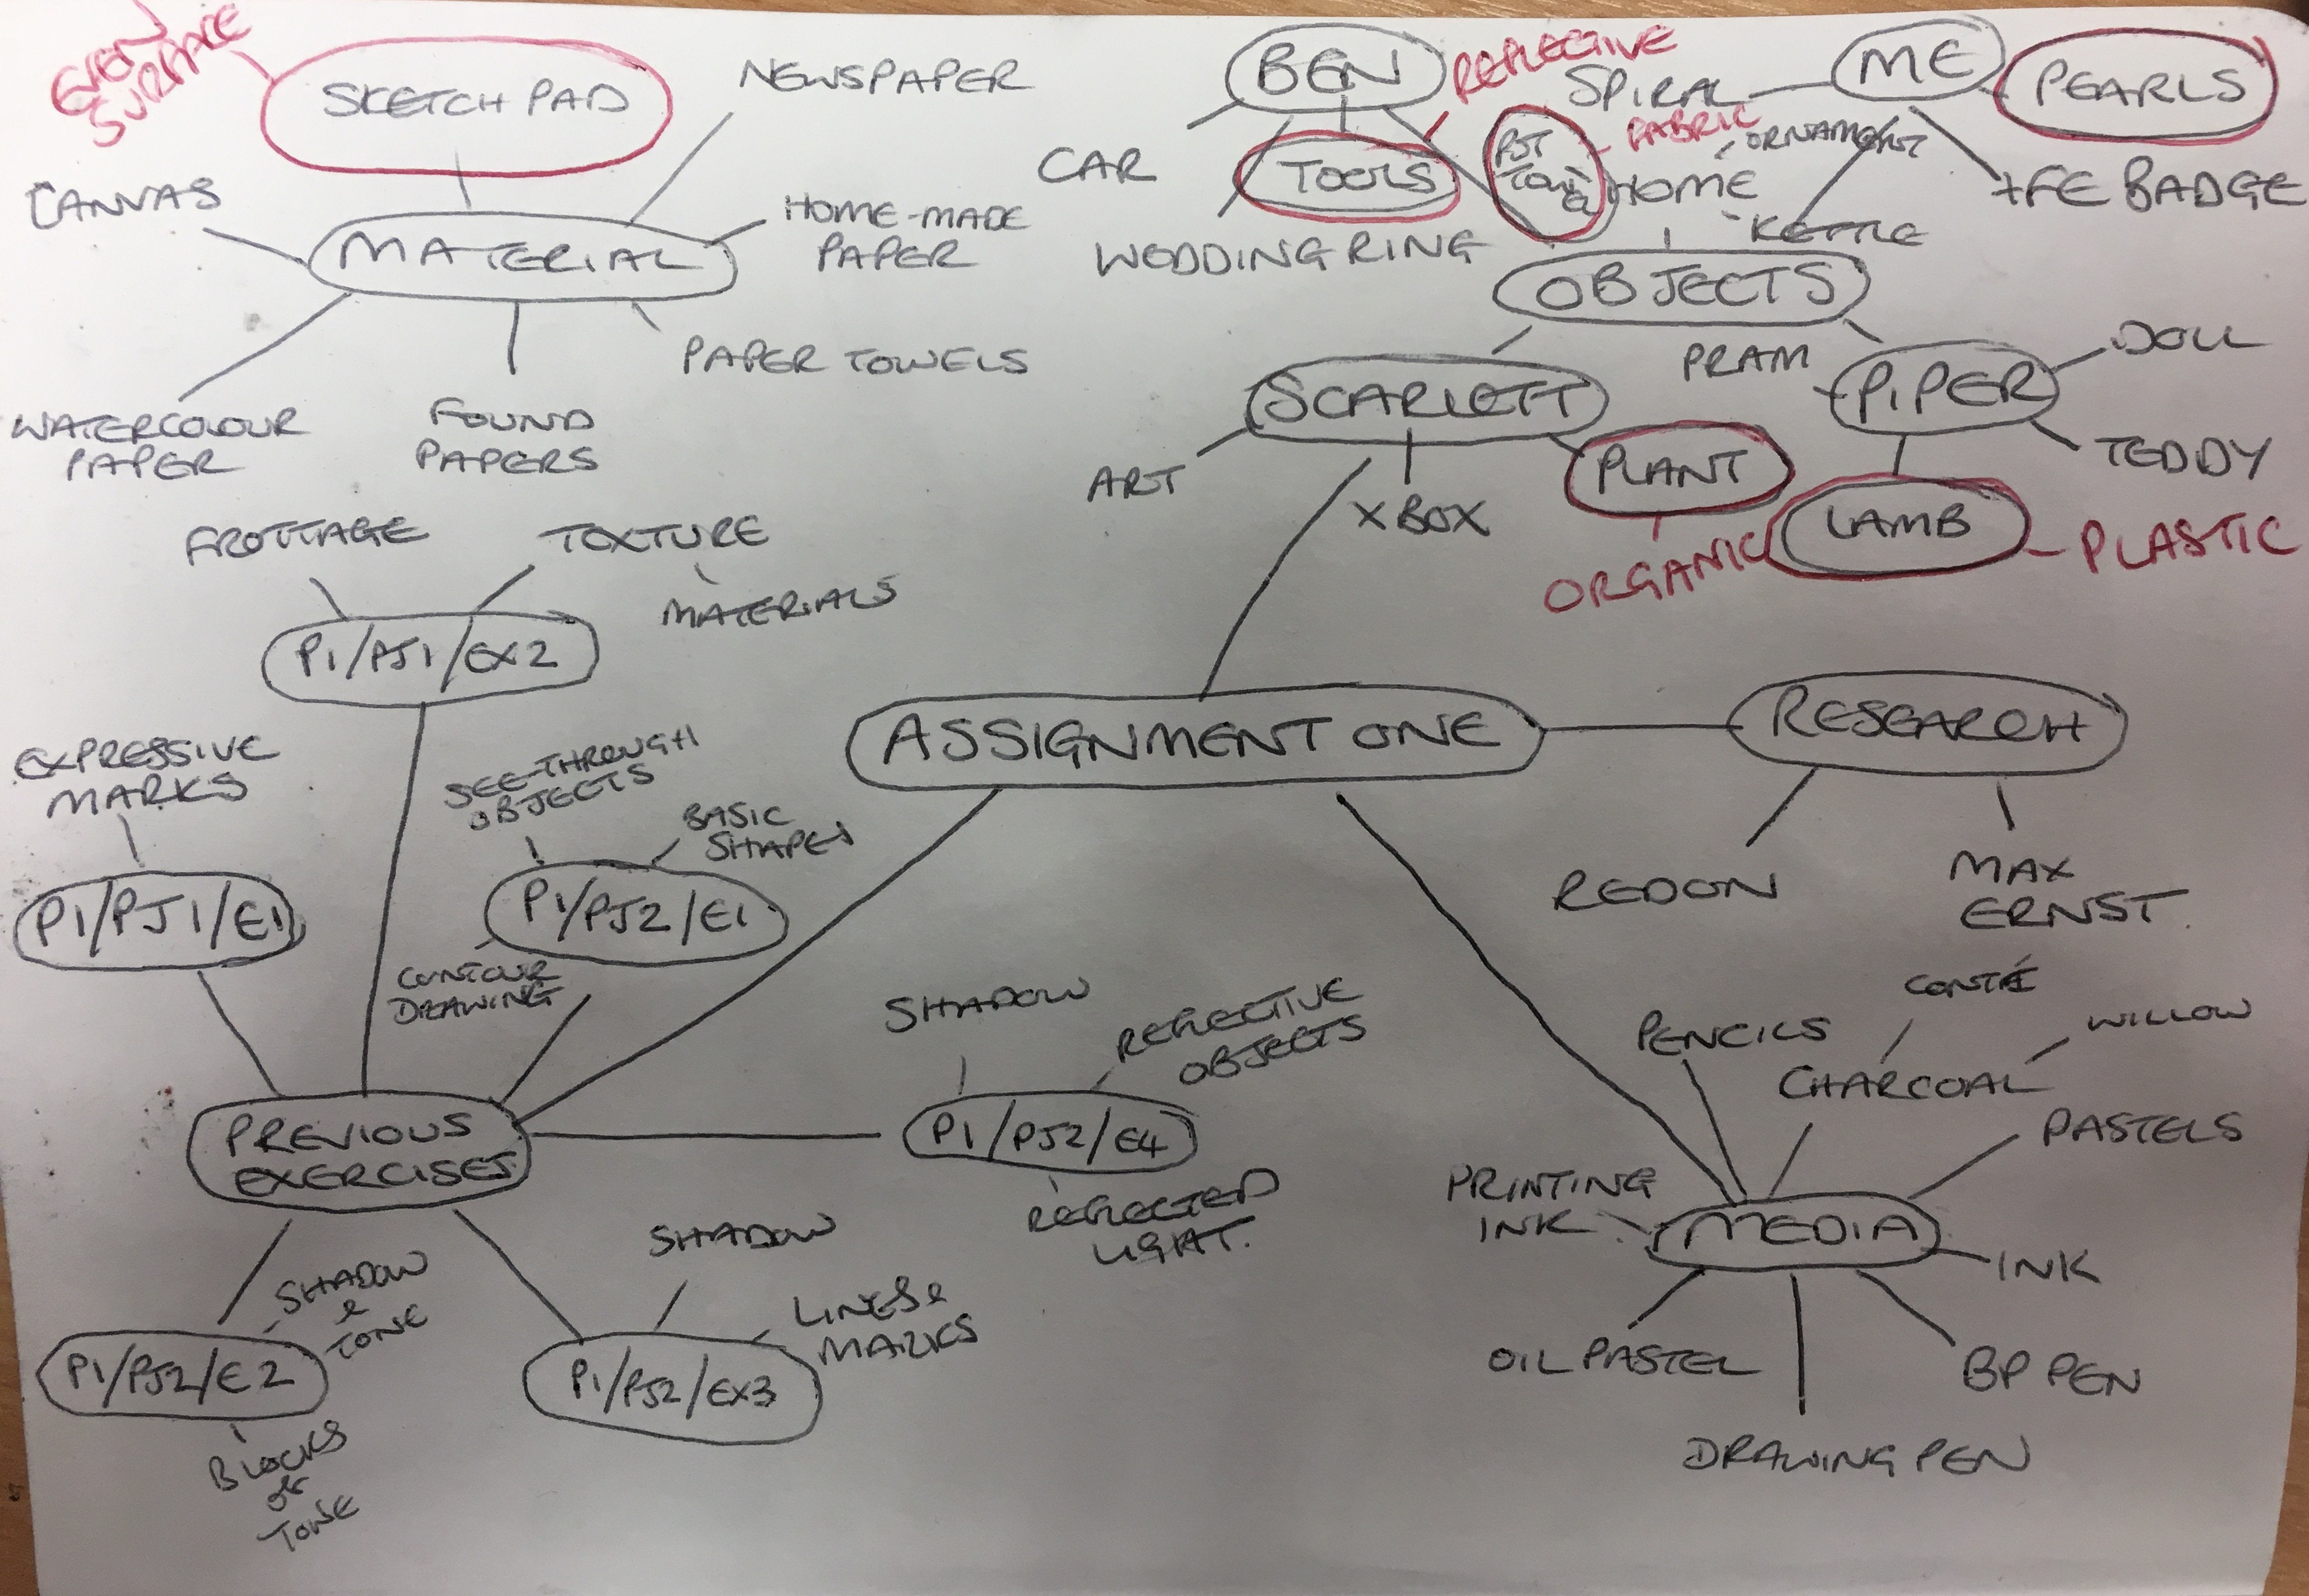 EVEN
SURFACE
SKETCH PAD
NEWSPAPER
CANVAS
MATERIAL
HOME-MADE
PAPER
PAPER TOWELS
FOUND
PAPERS
WATERCOLOUR
PAPER
BEN
REFLECTIVE
CAR
TOOLS
WEDDING RING
ME
SPIRAL
PEARLS
FABRIC
ORNAMENT
HOME
KETTLE
FE BADGE
OBJECTS
SCARLETT
ART
XBOX
PLANT
ORGANIC
PRAM
PIPER
DOLL
TEDDY
LAMB
PLASTIC
FROTTAGE
TEXTURE
MATERIALS
P1/PJ1/EX2
EXPRESSIVE
MARKS
P1/PJ1/E1
SEE-THROUGH
OBJECTS
BASIC
SHAPES
P1/PJ2/E1
CONTOUR
DRAWING
ASSIGNMENT ONE
RESEARCH
REDON
MAX
ERNST.
PREVIOUS
EXERCISES
SHADOW
REFLECTIVE
OBJECTS
P1/PJ2/E4
REFLECTED
LIGHT.
SHADOW
&
TONE
P1/PJ2/E2
BLOCKS
OF
TONE
SHADOW
LINES &
MARKS
P1/PJ2/EX3
PENCILS
CONTÉ
WILLOW
CHARCOAL
PASTELS
PRINTING
INK
MEDIA
INK
OIL PASTEL
BP PEN
DRAWING PEN